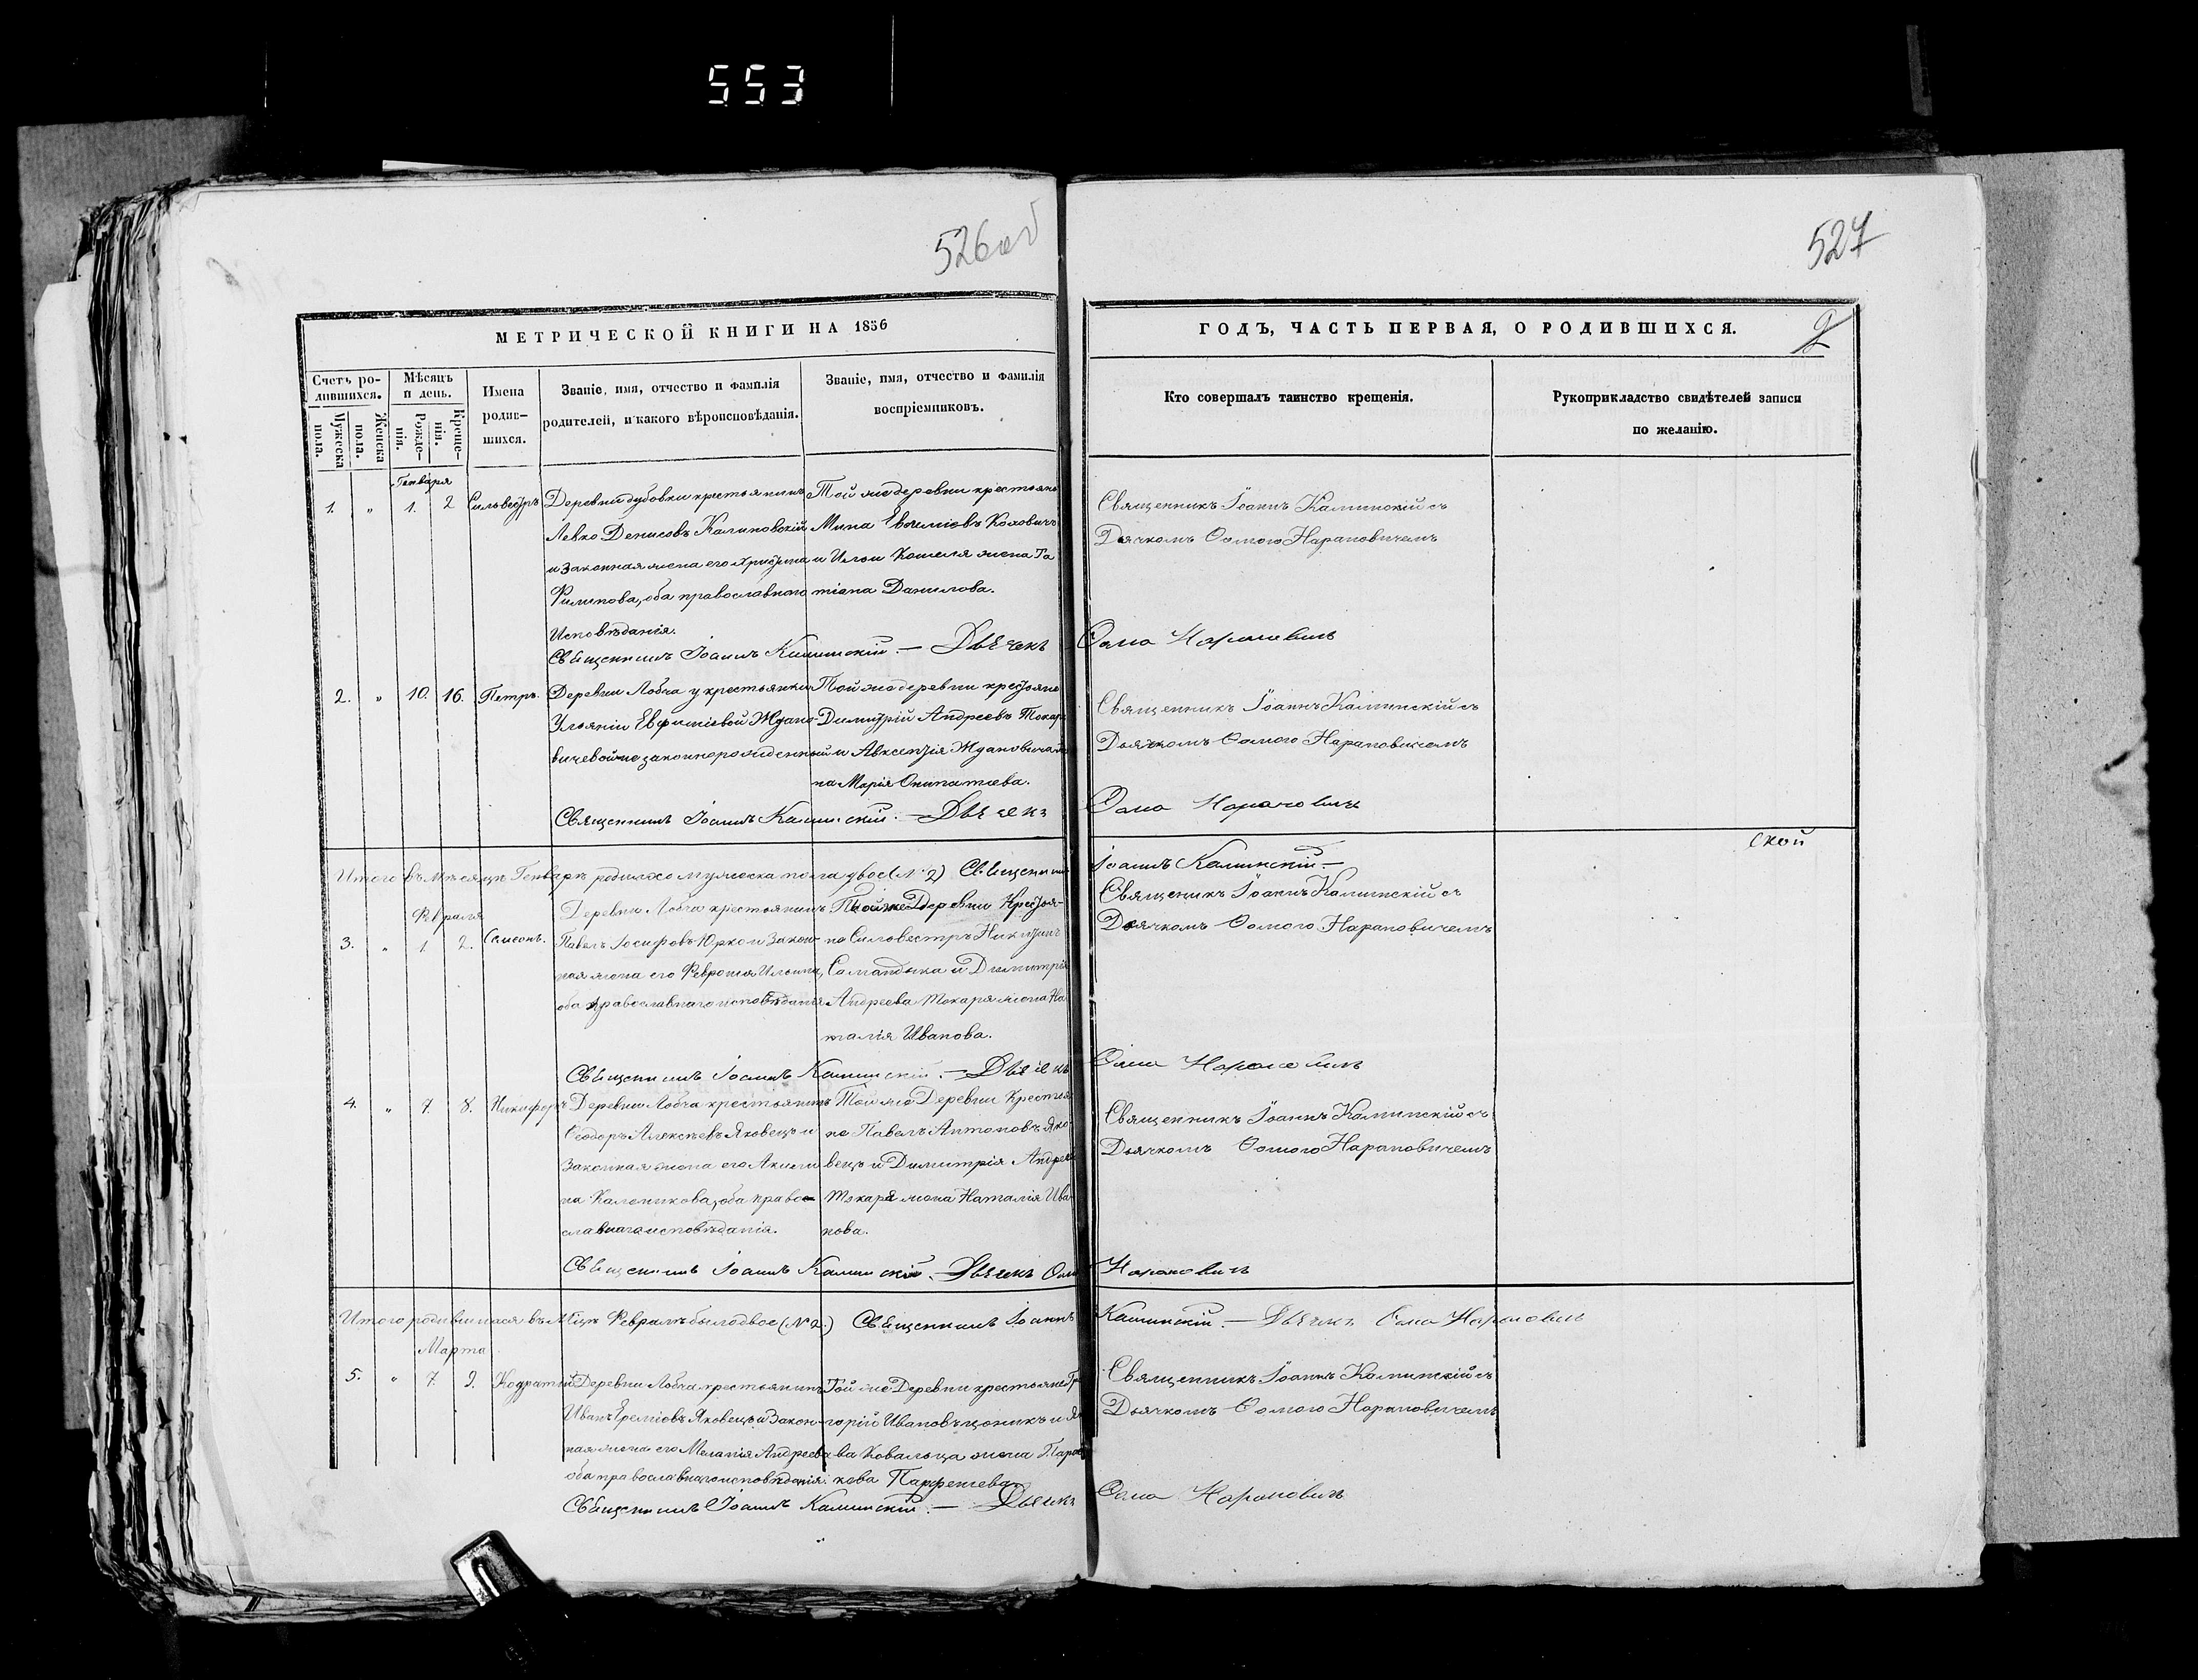 553
526 об
527
МЕТРИЧЕСКОЙ КНИГИ НА 1856
ГОДЪ, ЧАСТЬ ПЕРВАЯ, О РОДИВШИХСЯ.
2
Счетъ ро-
дившихся.
Мужеска
пола.
Женска
пола.
Мѣсяцъ
и день.
Рожде-
нія.
Креще-
нія.
Имена
родив-
шихся.
Званіе, имя, отчество и фамилія
родителей, и какого вѣроисповѣданія.
Званіе, имя, отчество и фамилія
воспріемниковъ.
Кто совершалъ таинство крещенія.
Рукоприкладство свидѣтелей записи
по желанію.
Генваря
1. " 1. 2 Сильвестръ
Деревни дубовки крестьянинъ
Левко Денисовъ Калиновскій
и законная жена его Христина
Филипова, оба православнаго
Исповѣданія.
Той же деревни крестьяне
Мина Евѳиміовъ
и Ильи Кошеля жена Та
тіана Данилова.
Священникъ Іоаннъ Калинскій съ
Дьячкомъ Ѳомою Нарановичемъ
Священникъ Іоаннъ Калинскій. — Дьячекъ Ѳома Нарановичъ
2. " 10. 16. Петръ.
Деревни Лобча у крестьянки
Ульяніи Евфиміевой Ждано-
вичевой незаконнорожденный
Той же деревни крестьяне
Димитрій Андреевъ Токарь
и Авксентія Ждановича же
на Марія
Священникъ Іоаннъ Калинскій съ
Дьячкомъ Ѳомою Нарановичемъ
Священникъ Іоаннъ Калинскій. — Дьячекъ Ѳома Нарановичъ
Итого въ мѣсяцѣ Генварѣ родилось мужеска пола двое (№ 2) Священникъ Іоаннъ Калинскій —
ской
Февраля
3. " 1. 2. Симеонъ.
Деревни Лобча крестьянинъ
Павелъ Іосифовъ Юрко и Закон-
ная жена его Феврония Ильина,
оба православнаго исповѣданія
Той же Деревни Крестья-
не Силовестръ Никитинъ
и Димитрія
Андреева Токаря жена На
талія Иванова.
Священикъ Іоаннъ Калинскій съ
Дьячкомъ Ѳомою Нарановичемъ
Священникъ Іоаннъ Калинскій. — Дьячекъ Ѳома Нарановичъ
4. " 7. 8. Никифоръ
Деревни Лобча крестьянинъ
Ѳеодоръ Алексѣевъ Яковецъ и
Законная жена его Акили
на Каленикова, оба право-
славнаго исповѣданія.
Той же Деревни Крестья
не Павелъ Антоновъ Яко-
вецъ и Димитрія Андреева
Токаря жена Наталія Ива
нова.
Священникъ Іоаннъ Калинскій съ
Дьячкомъ Ѳомою Нарановичемъ
Священникъ Іоаннъ Калинскій. — Дьячекъ Ѳома Нарановичъ
Итого родившихся въ Мцѣ Февралѣ было двое (№ 2.) Священникъ Іоаннъ Калинскій. — Дьячекъ Ѳома Нарановичъ
Марта
5. " 7. 9. Кодратій
Деревни Лобча крестьянинъ
Иванъ Ереміовъ Яковецъ и Закон-
ная жена его Меланія Андреева
оба православнаго исповѣданія.
Той же Деревни крестьяне Гри
горій Ивановъ
ва Ковальца жена Парас
кева Парфенева.
Священникъ Іоаннъ Калинскій съ
Дьячкомъ Ѳомою Нарановичемъ
Священникъ Іоаннъ Калинскій. — Дьячекъ Ѳома Нарановичъ